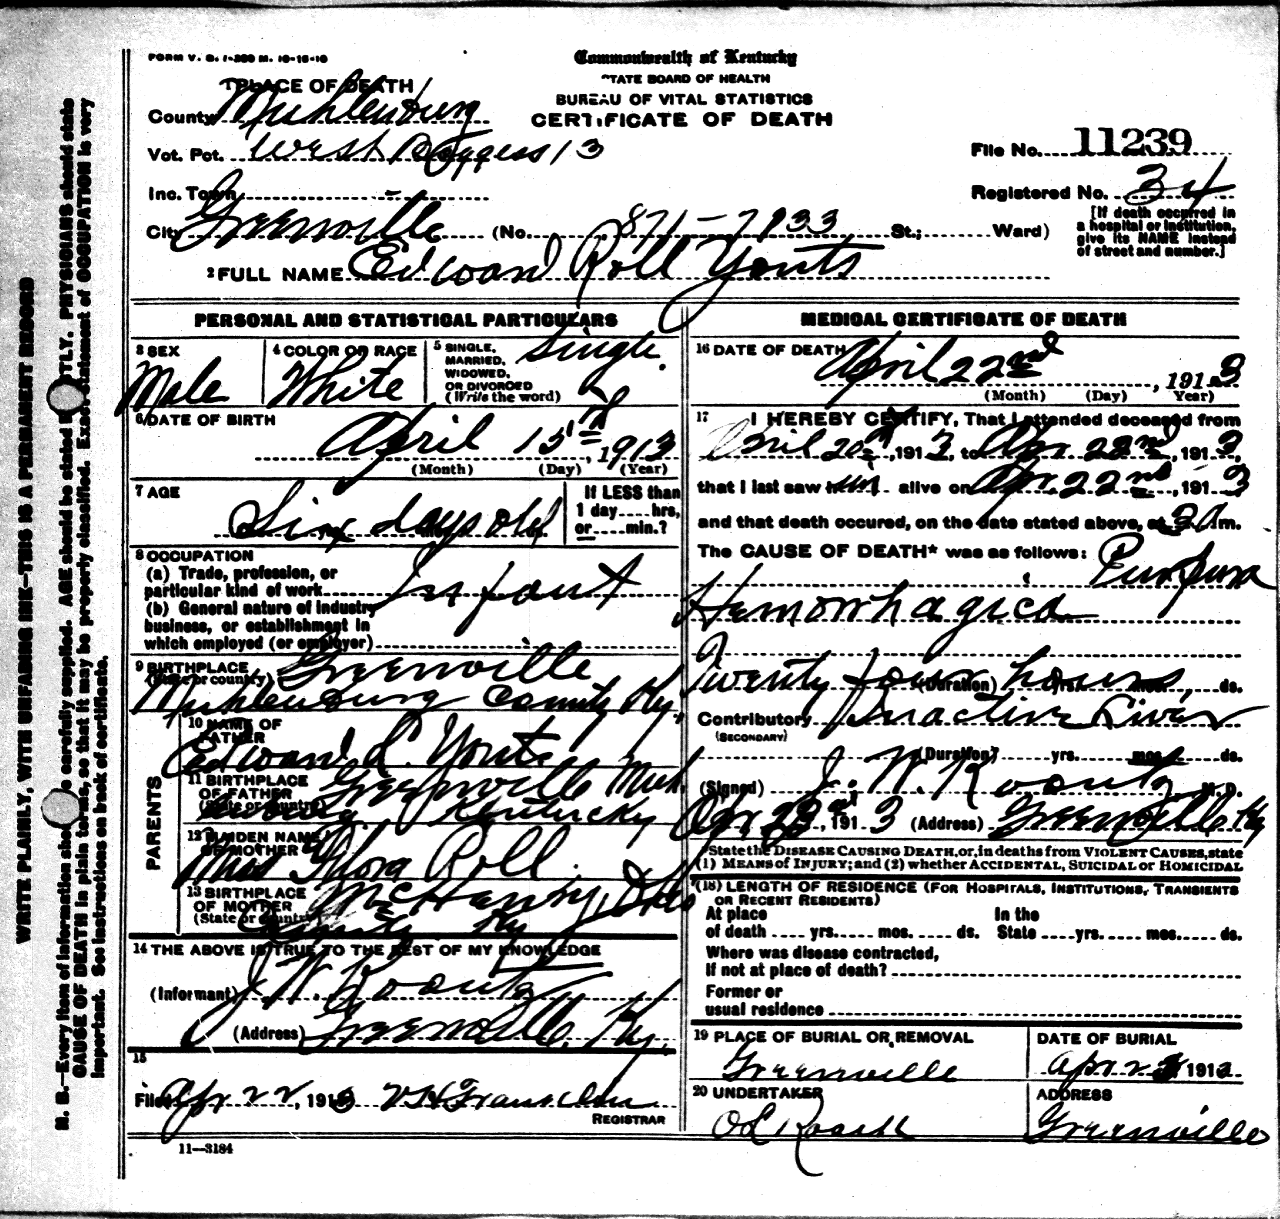 FORM V. S. 1-300 M. 10-15-10
Commonwealth of Kentucky
STATE BOARD OF HEALTH
BUREAU OF VITAL STATISTICS
CERTIFICATE OF DEATH
1 PLACE OF DEATH
County Muhlenburg
Vot. Pct. West Boggess 13
Inc. Town -
City Greenville (No. 871-7933 St.; Ward)
File No. 11239
Registered No. 34
[If death occurred in
a hospital or institution,
give its NAME instead
of street and number.]
2 FULL NAME Edward Roll Yonts
PERSONAL AND STATISTICAL PARTICULARS
3 SEX
Male
4 COLOR OR RACE
White
5 SINGLE,
MARRIED,
WIDOWED,
OR DIVORCED
(Write the word)
Single
6 DATE OF BIRTH
April 15th, 1913
(Month) (Day) (Year)
7 AGE
Six days old
If LESS than
1 day .... hrs,
or .... min.?
8 OCCUPATION
(a) Trade, profession, or
particular kind of work Infant
(b) General nature of industry
business, or establishment in
which employed (or employer)
9 BIRTHPLACE
(State or country) Greenville
Muhlenburg County Ky.
PARENTS
10 NAME OF
FATHER
Edward L. Yonts
11 BIRTHPLACE
OF FATHER
(State or country)
Greenville Muh
Kentucky
12 MAIDEN NAME
OF MOTHER
Miss Flora Roll
13 BIRTHPLACE
OF MOTHER
(State or country)
McHenry, Ohio
County Ky
14 THE ABOVE IS TRUE TO THE BEST OF MY KNOWLEDGE
(Informant) J. W. Koontz
(Address) Greenville, Ky.
15
Filed Apr 22, 1913 Franklin
REGISTRAR
11—3184
MEDICAL CERTIFICATE OF DEATH
16 DATE OF DEATH
April 22nd, 1913
(Month) (Day) Year)
17 I HEREBY CERTIFY, That I attended deceased from
April 20, 1913, to Apr 22nd, 1913,
that I last saw him alive on Apr. 22nd, 1913
and that death occured, on the date stated above, at 3 a m.
The CAUSE OF DEATH* was as follows: Purpura
Hemorrhagica
Twenty four hours
(Duration) yrs. mos. ds.
Contributory Inactive Liver
(SECONDARY)
(Duration) yrs. mos. ds.
(Signed) J. W. Koontz, M.D.
Apr 23rd, 1913 (Address) Greenville Ky
*State the DISEASE CAUSING DEATH, or, in deaths from VIOLENT CAUSES, state
(1) MEANS OF INJURY; and (2) whether ACCIDENTAL, SUICIDAL OR HOMICIDAL
(18) LENGTH OF RESIDENCE (FOR HOSPITALS, INSTITUTIONS, TRANSIENTS
OR RECENT RESIDENTS)
At place
of death .... yrs. .... mos. .... ds.
In the
State .... yrs. .... mos. .... ds.
Where was disease contracted,
If not at place of death?
Former or
usual residence
19 PLACE OF BURIAL OR REMOVAL
Greenville
DATE OF BURIAL
Apr 23 1913
20 UNDERTAKER
O L Roark
ADDRESS
Greenville
WRITE PLAINLY, WITH UNFADING INK—THIS IS A PERMANENT RECORD
N. B.—Every item of information should be carefully supplied. AGE should be stated EXACTLY. PHYSICIANS should state
CAUSE OF DEATH in plain terms, so that it may be properly classified. Exact statement of OCCUPATION is very
important. See instructions on back of certificate.